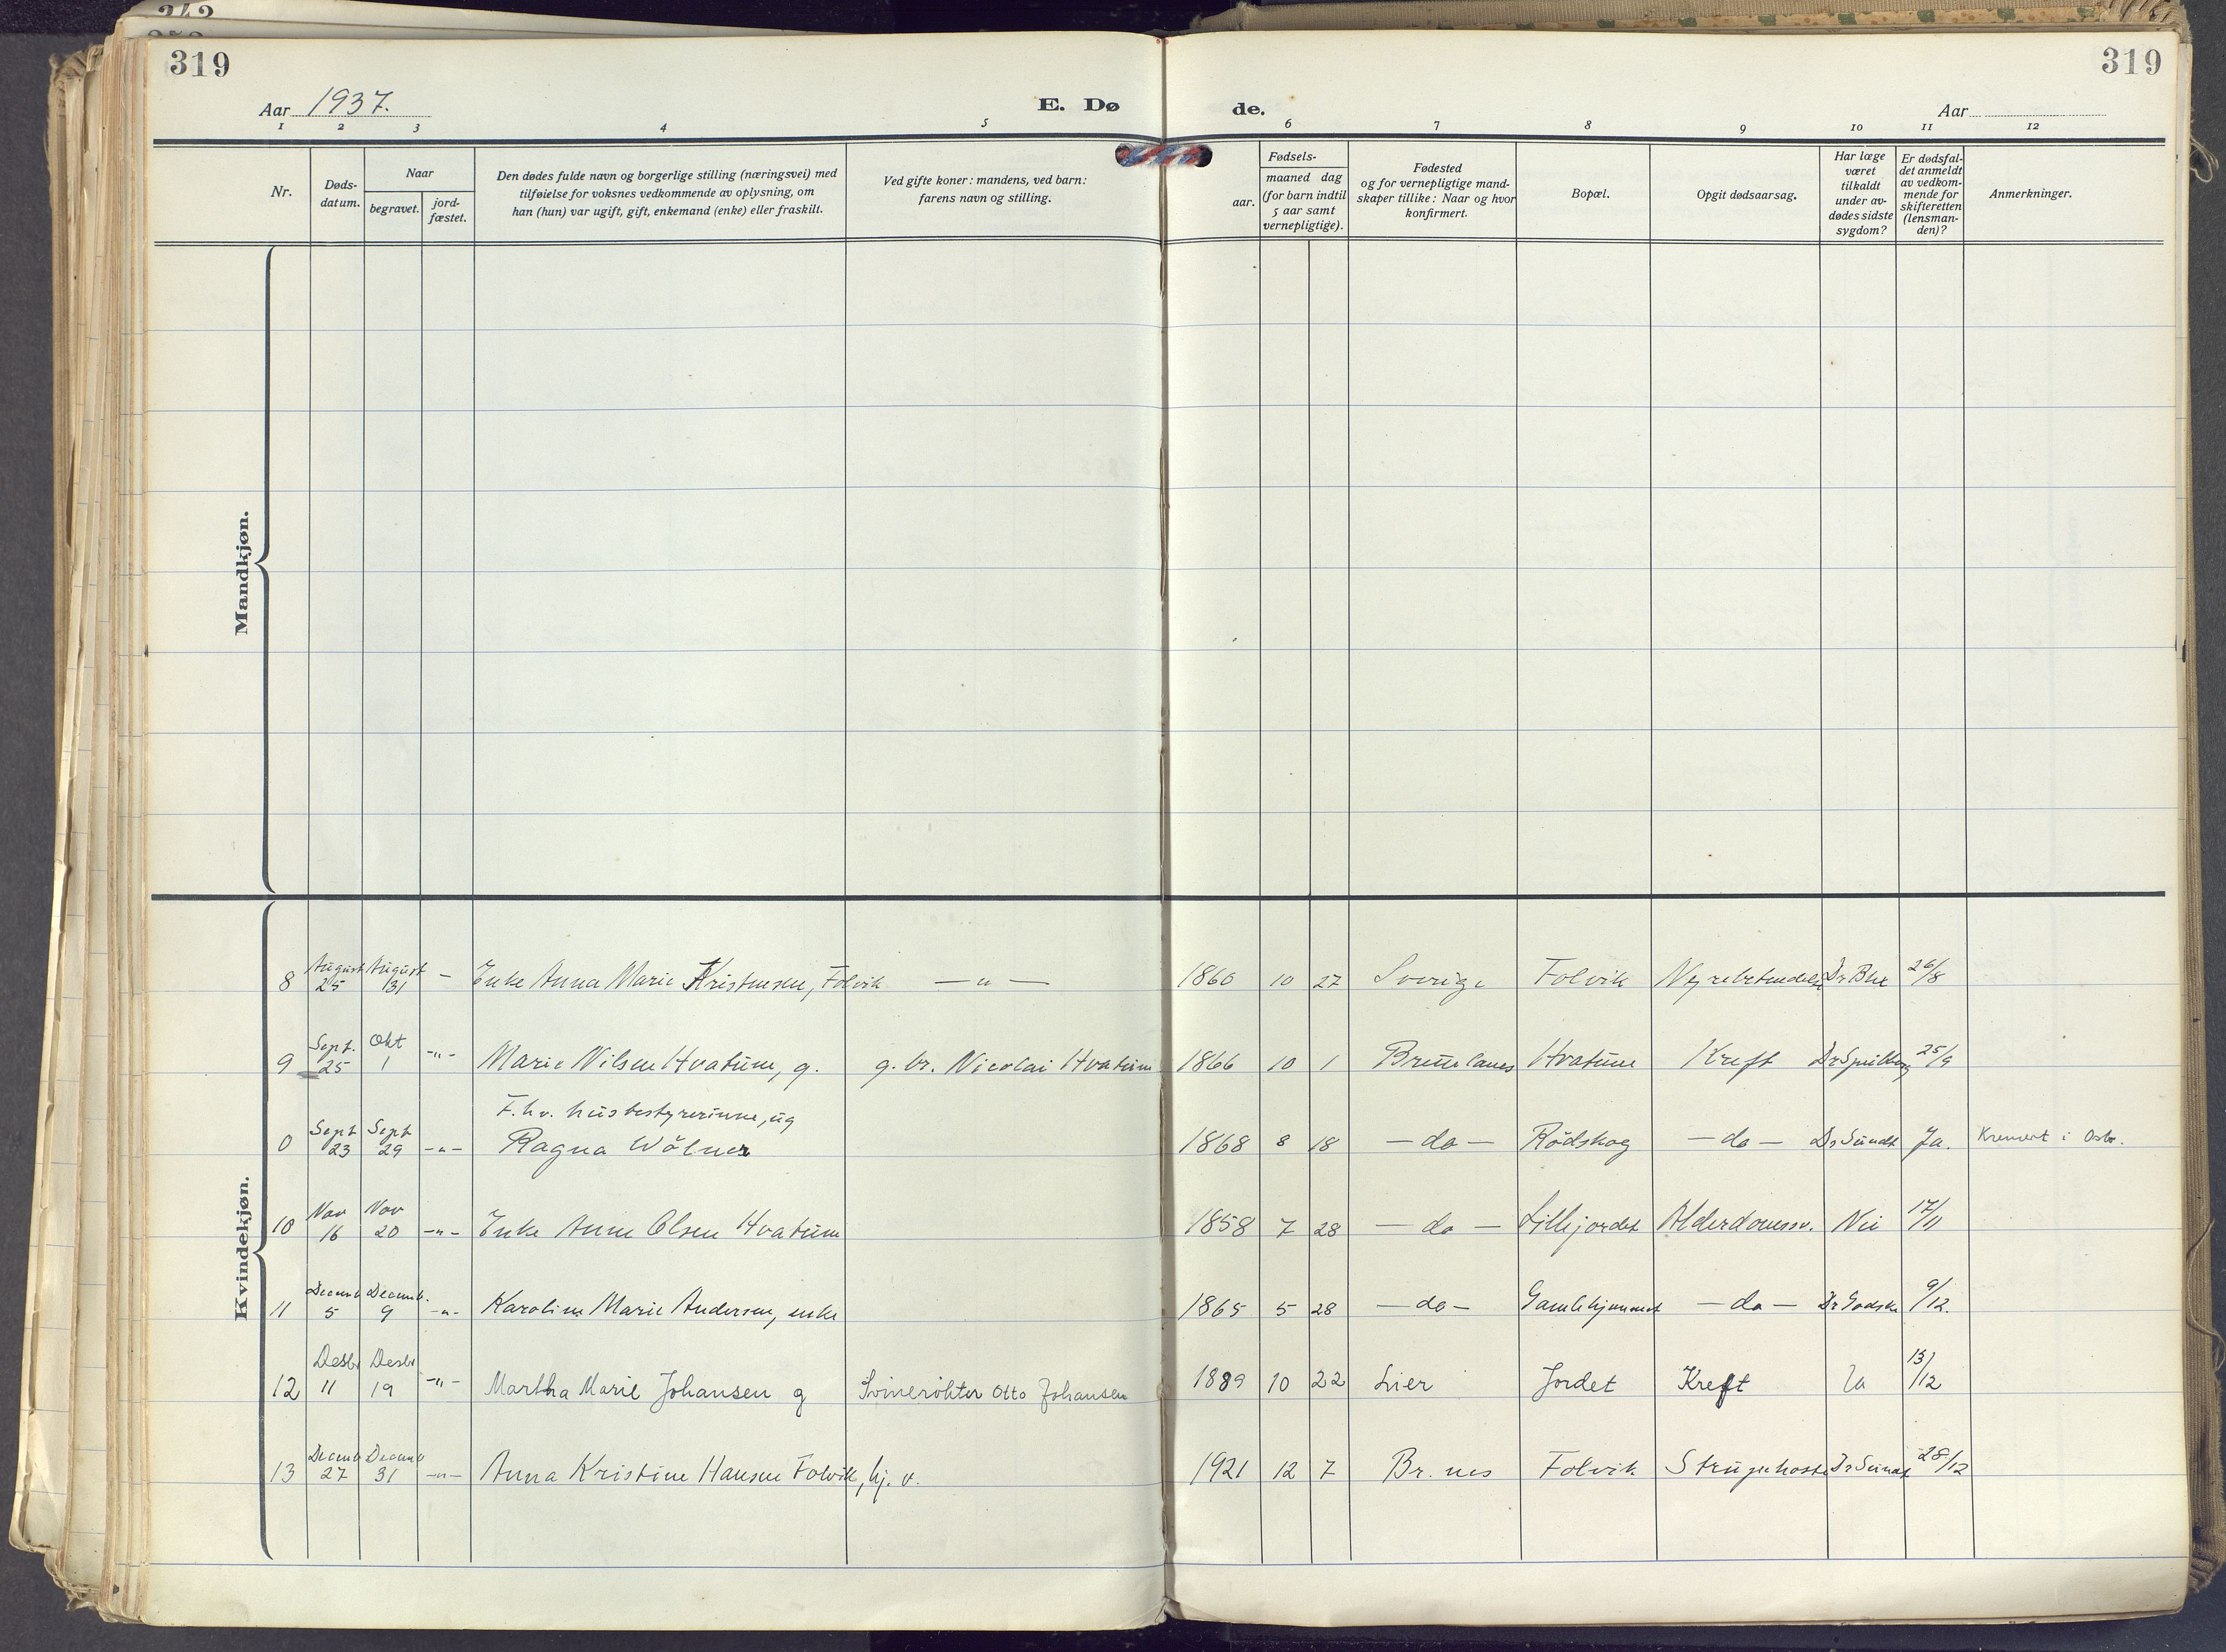 319
319
Aar 1937.
E. Dø
de.
Aar
1 2 3 4 5 6 7 8 9 10 11 12
Nr.
Døds-
datum.
Naar
begravet.
jord-
fæstet.
Den dødes fulde navn og borgerlige stilling (næringsvei) med
tilføielse for voksnes vedkommende av oplysning, om
han (hun) var ugift, gift, enkemand (enke) eller fraskilt.
Ved gifte koner: mandens, ved barn:
farens navn og stilling.
Fødsels-
aar.
maaned dag
(for barn indtil
5 aar samt
vernepligtige).
Fødested
og for vernepligtige mand-
skaper tillike: Naar og hvor
konfirmert.
Bopæl.
Opgit dødsaarsag.
Har læge
været
tilkaldt
under av-
dødes sidste
sygdom?
Er dødsfal-
det anmeldt
av vedkom-
mende for
skifteretten
(lensman-
den)?
Anmerkninger.
Mandkjøn.
Kvindekjøn.
8 August 25 August 31 - Enke Anna Marie Kristensen, Folvik -"- 1860 10 27 Sverige Folvik 26/8
9 Sept. 25 Okt 1 -"- Marie Nilsen Hvatum, g. g. br. Nicolai Hvatum 1866 10 1 Brunlanes Hvatum Kreft 25/9
F. hv. husbestyrerinne, ug
0 Sept 23 Sept 29 -"- Ragna 1868 8 18 - do - Rödskog - do - Dr Sundt Ja. Kremert i Oslo.
10 Nov 16 Nov 20 -"- Enke Anne Olsen Hvatum 1858 7 28 - do - Lillejordet Alderdomssv. Nei 17/11
11 Decemb 5 Decemb. 9 -"- Karoline Marie Andersen, enke 1865 5 28 - do - Gamlehjemmet - do - Dr Godske 9/12.
12 Desbr 11 Desbr 19 -"- Martha Marie Johansen g Svinerökter Otto Johansen 1889 10 22 Lier Jordet Kreft Ja 13/12
13 Decemb 27 Decemb 31 -"- Anna Kristine Hansen Folvik, hj. v. 1921 12 7 Br. nes Folvik Strupehoste Dr Sundt 28/12